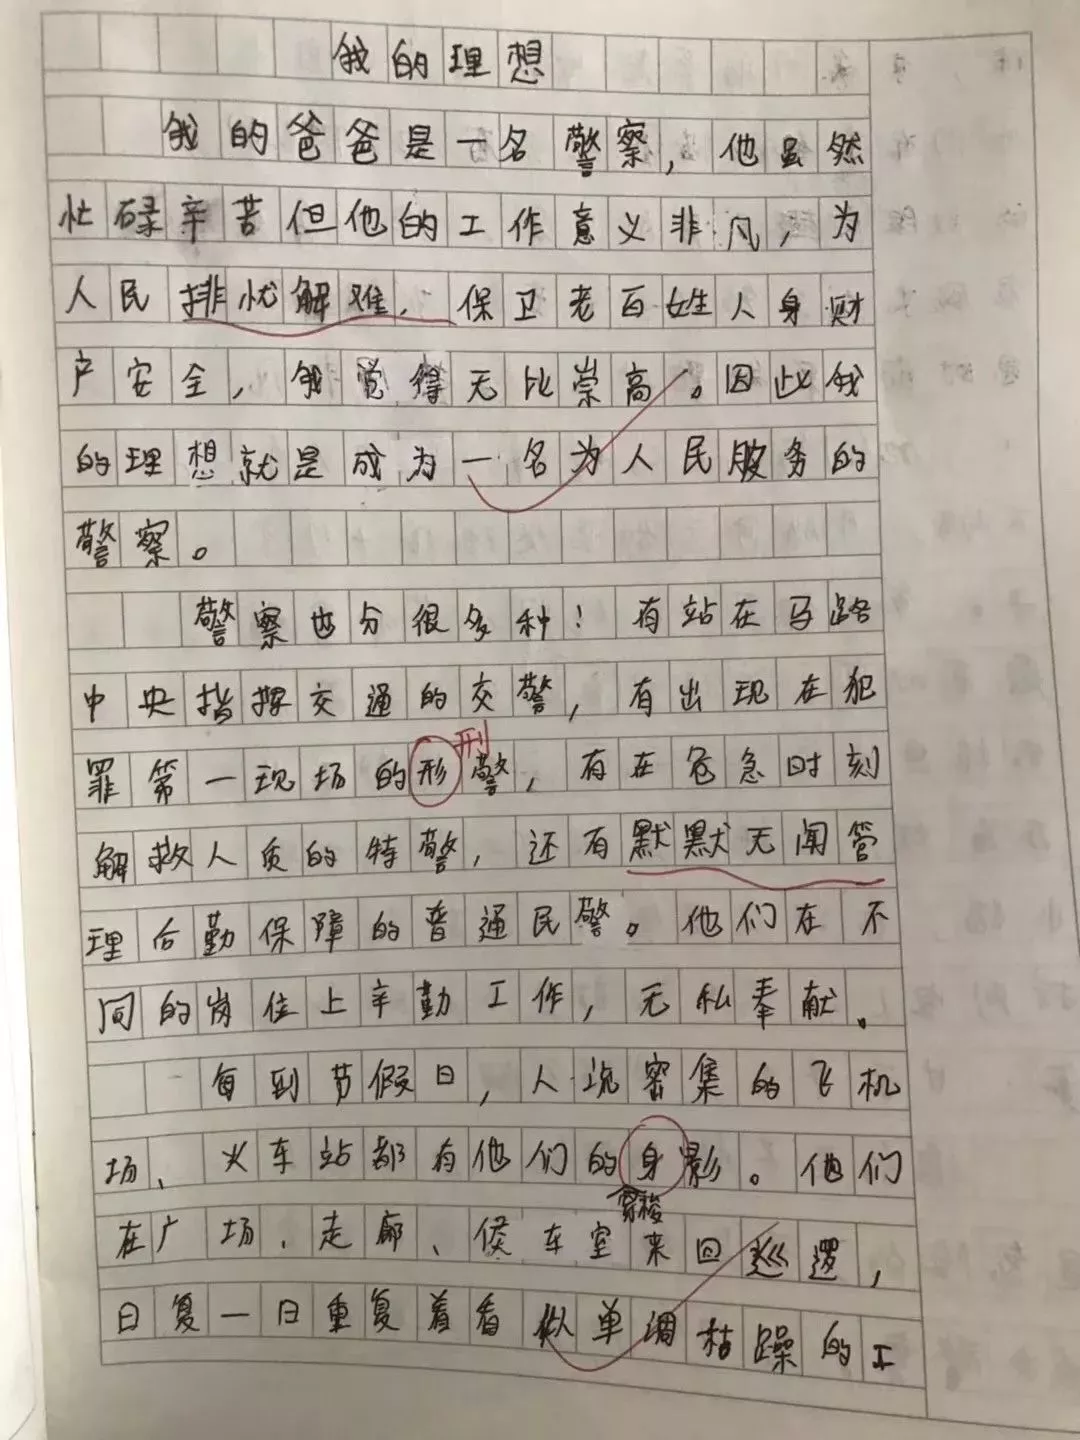 我的理想
我的爸爸是一名警察，他虽然
忙碌辛苦但他的工作意义非凡，为
人民排忧解难，保卫老百姓人身财
产安全，我觉得无比崇高。因此我
的理想就是成为一名为人民服务的
警察。
警察也分很多种！有站在马路
中央指挥交通的交警，有出现在犯
刑
罪第一现场的形警，有在危急时刻
解救人质的特警，还有默默无闻管
理后勤保障的普通民警。他们在不
同的岗位上辛勤工作，无私奉献。
每到节假日，人流密集的飞机
场、火车站都有他们的身影。他们
穿梭
在广场、走廊、候车室来回巡逻，
日复一日重复着看似单调枯躁的工